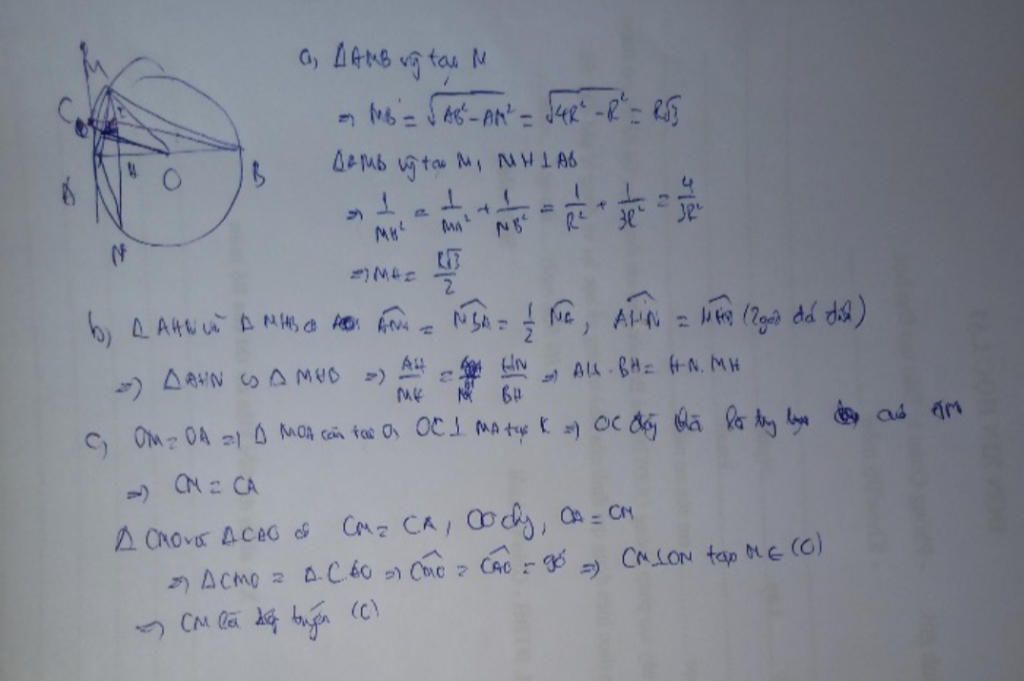 M
C
I
H
O
B
A
N
a, ΔAMB vg tại M
=> MB = √AB² - AM² = √4R² - R² = R√3
ΔAMB vg tại M, MH ⊥ AB
=> 1/MH² = 1/MA² + 1/MB² = 1/R² + 1/3R² = 4/3R²
=> MH = R√3/2
b, Δ AHN và Δ MHB có ANH = MBA = 1/2 , AHN = MHB (2 góc đối đỉnh)
=> ΔAHN ∽ ΔMHB => AH/MH = HN/BH => AH . BH = HN . MH
c, OM = OA => Δ MOA cân tại O, OC ⊥ MA tại K => OC là của AM
=> CM = CA
Δ CMO và ΔCAO có CM = CA, CO chg, OA = CM
=> ΔCMO = ΔCAO => CMO = CAO = 90° => CM ⊥ OM tại M ∈ (O)
=> CM là tiếp tuyến (O)